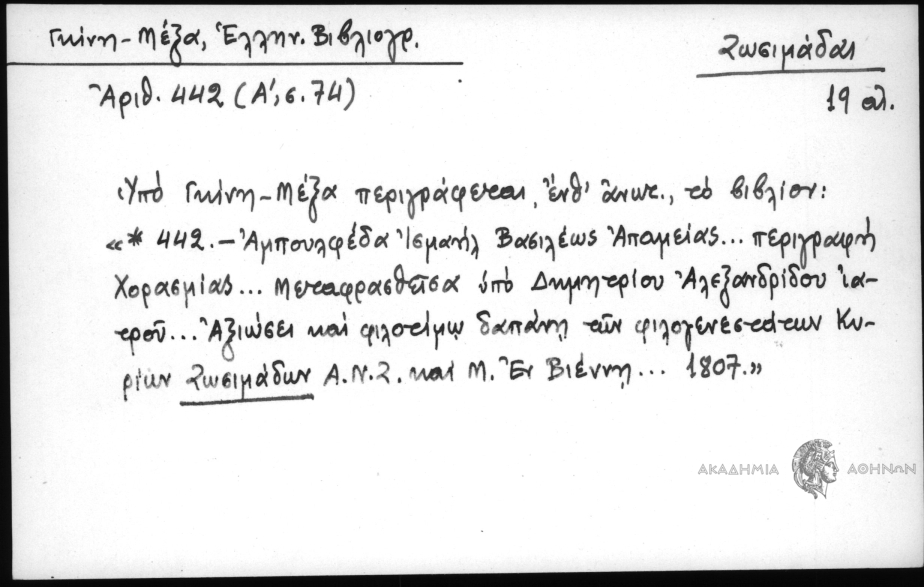 Γκίνη-Μέξα, Ἑλλην. Βιβλιογρ.
Ζωσιμάδαι
Ἀριθ. 442 (Α', σ. 74)
19 αἰ.
Ὑπὸ Γκίνη-Μέξα περιγράφεται, ἔνθ' ἄνωτ., τὸ βιβλίον:
«* 442.- Ἀμπουλφέδα Ἰσμαὴλ Βασιλέως Ἀπαμείας... περιγραφὴ
Χορασμίας... Μεταφρασθεῖσα ὑπὸ Δημητρίου Ἀλεξανδρίδου ἰα-
τροῦ... Ἀξιώσει καὶ φιλοτίμῳ δαπάνῃ τῶν φιλογενεστάτων Κυ-
ρίων Ζωσιμάδων Α.Ν.Ζ. καὶ Μ. Ἐν Βιέννῃ... 1807.»
ΑΚΑΔΗΜΙΑ ΑΘΗΝΩΝ